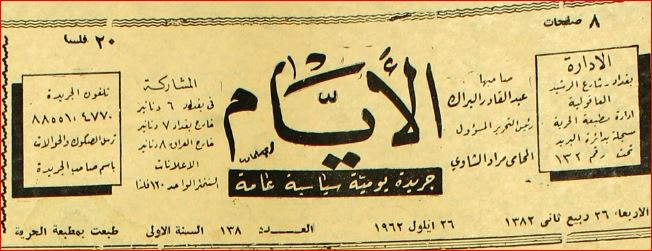 ٨ صفحات
٢٠ فلسا
الادارة
بغداد رشارع الرشيد
العاقولية
ادارة مطبعة الحرية
سجلة بدائرة البريد
تحت رقم ١٣٢
صاحبها
عبد القادر البراك
رئيس التحرير المسؤول
المحامي مراد الشاوي
الأيام
جريدة يومية سياسية عامة
المشاركة
في بغداد ٦ دنانير
خارج بغداد ٧ دنانير
خارج العراق ٨ دنانير
الاعلانات
السنتمتر الواحد ١٢٠ فلسا
تلفون الجريدة
ترسل الصكوك والحوالات
باسم صاحب الجريدة
الاربعاء ٢٦ ربيع ثاني ١٣٨٢
٢٦ ايلول ١٩٦٢
العـــدد ١٣٨
السنة الاولى
طبعت بمطبعة الحرية